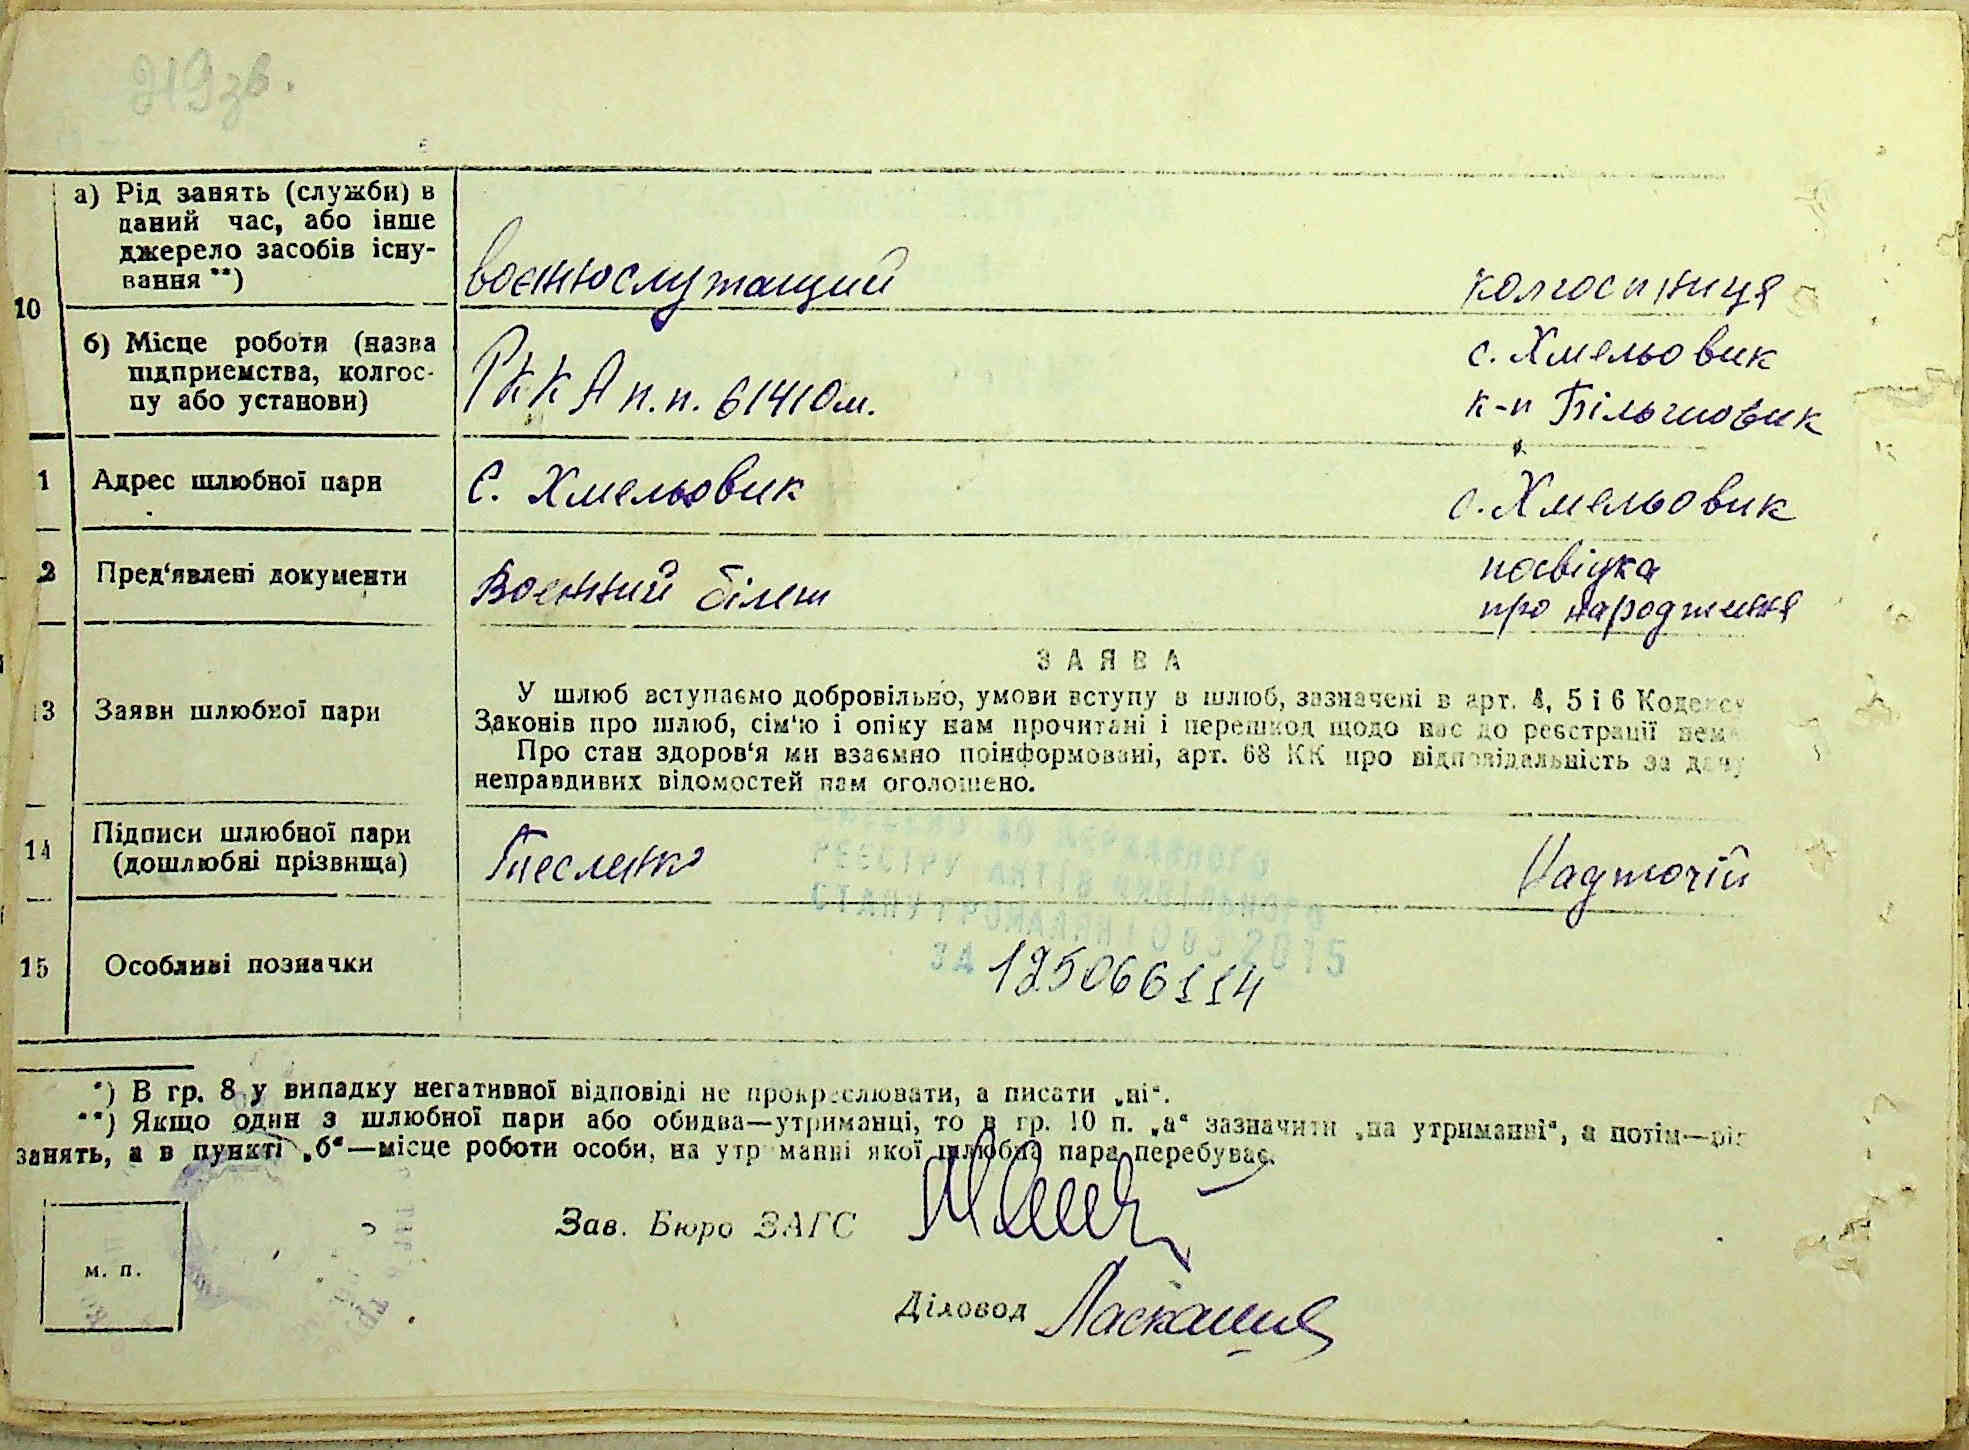 219зв.
а) Рід занять (служби) в
даний час, або інше
джерело засобів існу-
вання **)
воєннюслужащий
колгоспниця
10
б) Місце роботи (назва
підприємства, колгос-
пу або установи)
РККА п.п. 61410м.
с. Хмельовик
к-п Більшовик
1 Адрес шлюбної пари
с. Хмельовик
с. Хмельовик
2 Пред'явлені документи
Воєнний білет
посвідка
про народження
ЗАЯВА
13 Заяви шлюбної пари
У шлюб вступаємо добровільно, умови вступу в шлюб, зазначені в арт. 4, 5 і 6 Кодексу
Законів про шлюб, сім'ю і опіку нам прочитані і перешкод щодо нас до реєстрації нема
Про стан здоров'я ми взаємно поінформовані, арт. 68 КК про відповідальність за дачу
неправдивих відомостей нам оголошено.
14 Підписи шлюбної пари
(дошлюбні прізвища)
Тесленко
Надточій
ВНЕСЕНО ДО ДЕРЖАВНОГО
РЕЄСТРУ АКТІВ ЦИВІЛЬНОГО
СТАНУ ГРОМАДЯН 10 03 2015
ЗА 125066114
15 Особливі позначки
*) В гр. 8 у випадку негативної відповіді не прокреслювати, а писати „ні“.
**) Якщо один з шлюбної пари або обидва—утриманці, то в гр. 10 п. „а“ зазначити „на утриманні“, а потім—рід
занять, а в пункті „б“—місце роботи особи, на утриманні якої шлюбна пара перебуває.
Зав. Бюро ЗАГС
м. п.
Діловод